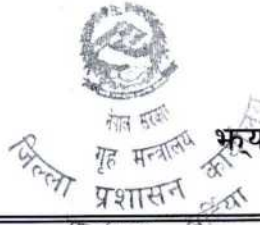 नेपाल सरकार
गृह मन्त्रालय
जिल्ला प्रशासन कार्यालय
झ्य